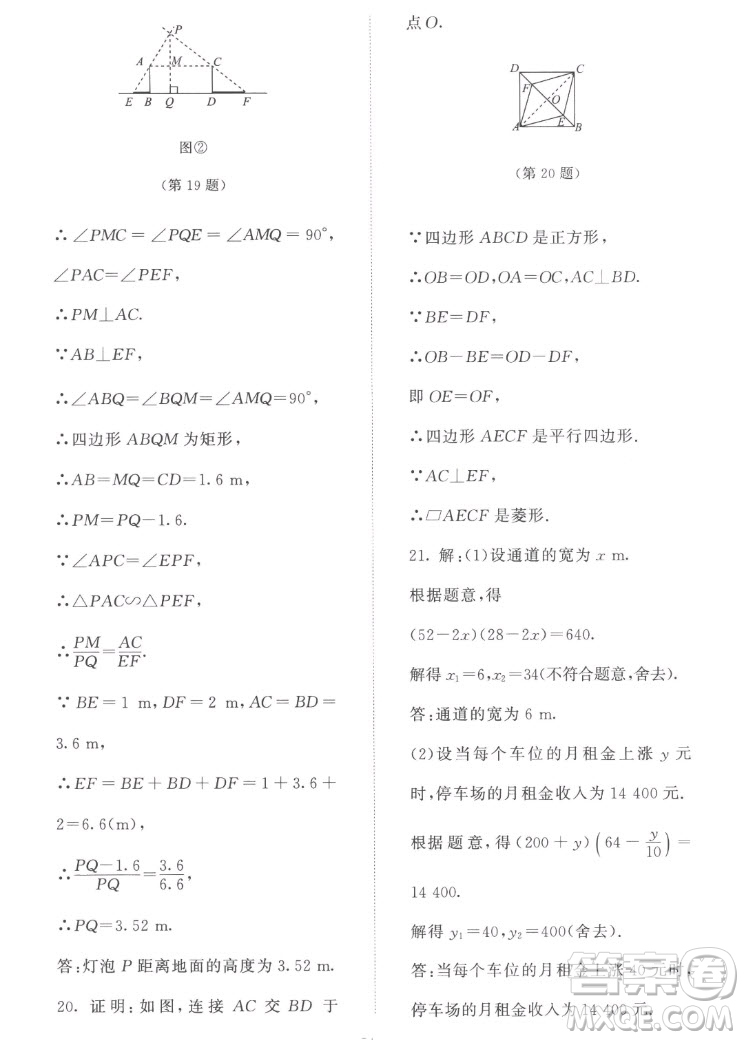 P
A M C
E B Q D F
图②
(第 19 题)
∴∠PMC=∠PQE=∠AMQ=90°,
∠PAC=∠PEF,
∴PM⊥AC.
∵AB⊥EF,
∴∠ABQ=∠BQM=∠AMQ=90°,
∴四边形 ABQM 为矩形,
∴AB=MQ=CD=1.6 m,
∴PM=PQ-1.6.
∵∠APC=∠EPF,
∴△PAC∽△PEF,
∴PM/PQ=AC/EF.
∵BE=1 m,DF=2 m,AC=BD=
3.6 m,
∴EF=BE+BD+DF=1+3.6+
2=6.6(m),
∴(PQ-1.6)/PQ=3.6/6.6,
∴PQ=3.52 m.
答:灯泡 P 距离地面的高度为 3.52 m.
20. 证明:如图,连接 AC 交 BD 于
点 O.
D C
F
O
E
A B
(第 20 题)
∵四边形 ABCD 是正方形,
∴OB=OD,OA=OC,AC⊥BD.
∵BE=DF,
∴OB-BE=OD-DF,
即 OE=OF,
∴四边形 AECF 是平行四边形.
∵AC⊥EF,
∴▱AECF 是菱形.
21. 解:(1)设通道的宽为 x m.
根据题意,得
(52-2x)(28-2x)=640.
解得 x₁=6,x₂=34(不符合题意,舍去).
答:通道的宽为 6 m.
(2)设当每个车位的月租金上涨 y 元
时,停车场的月租金收入为 14 400 元.
根据题意,得(200+y)(64-y/10)=
14 400.
解得 y₁=40,y₂=400(舍去).
答:当每个车位的月租金上涨 40 元时,
停车场的月租金收入为 14 400 元.
答案圈
MXQE.COM